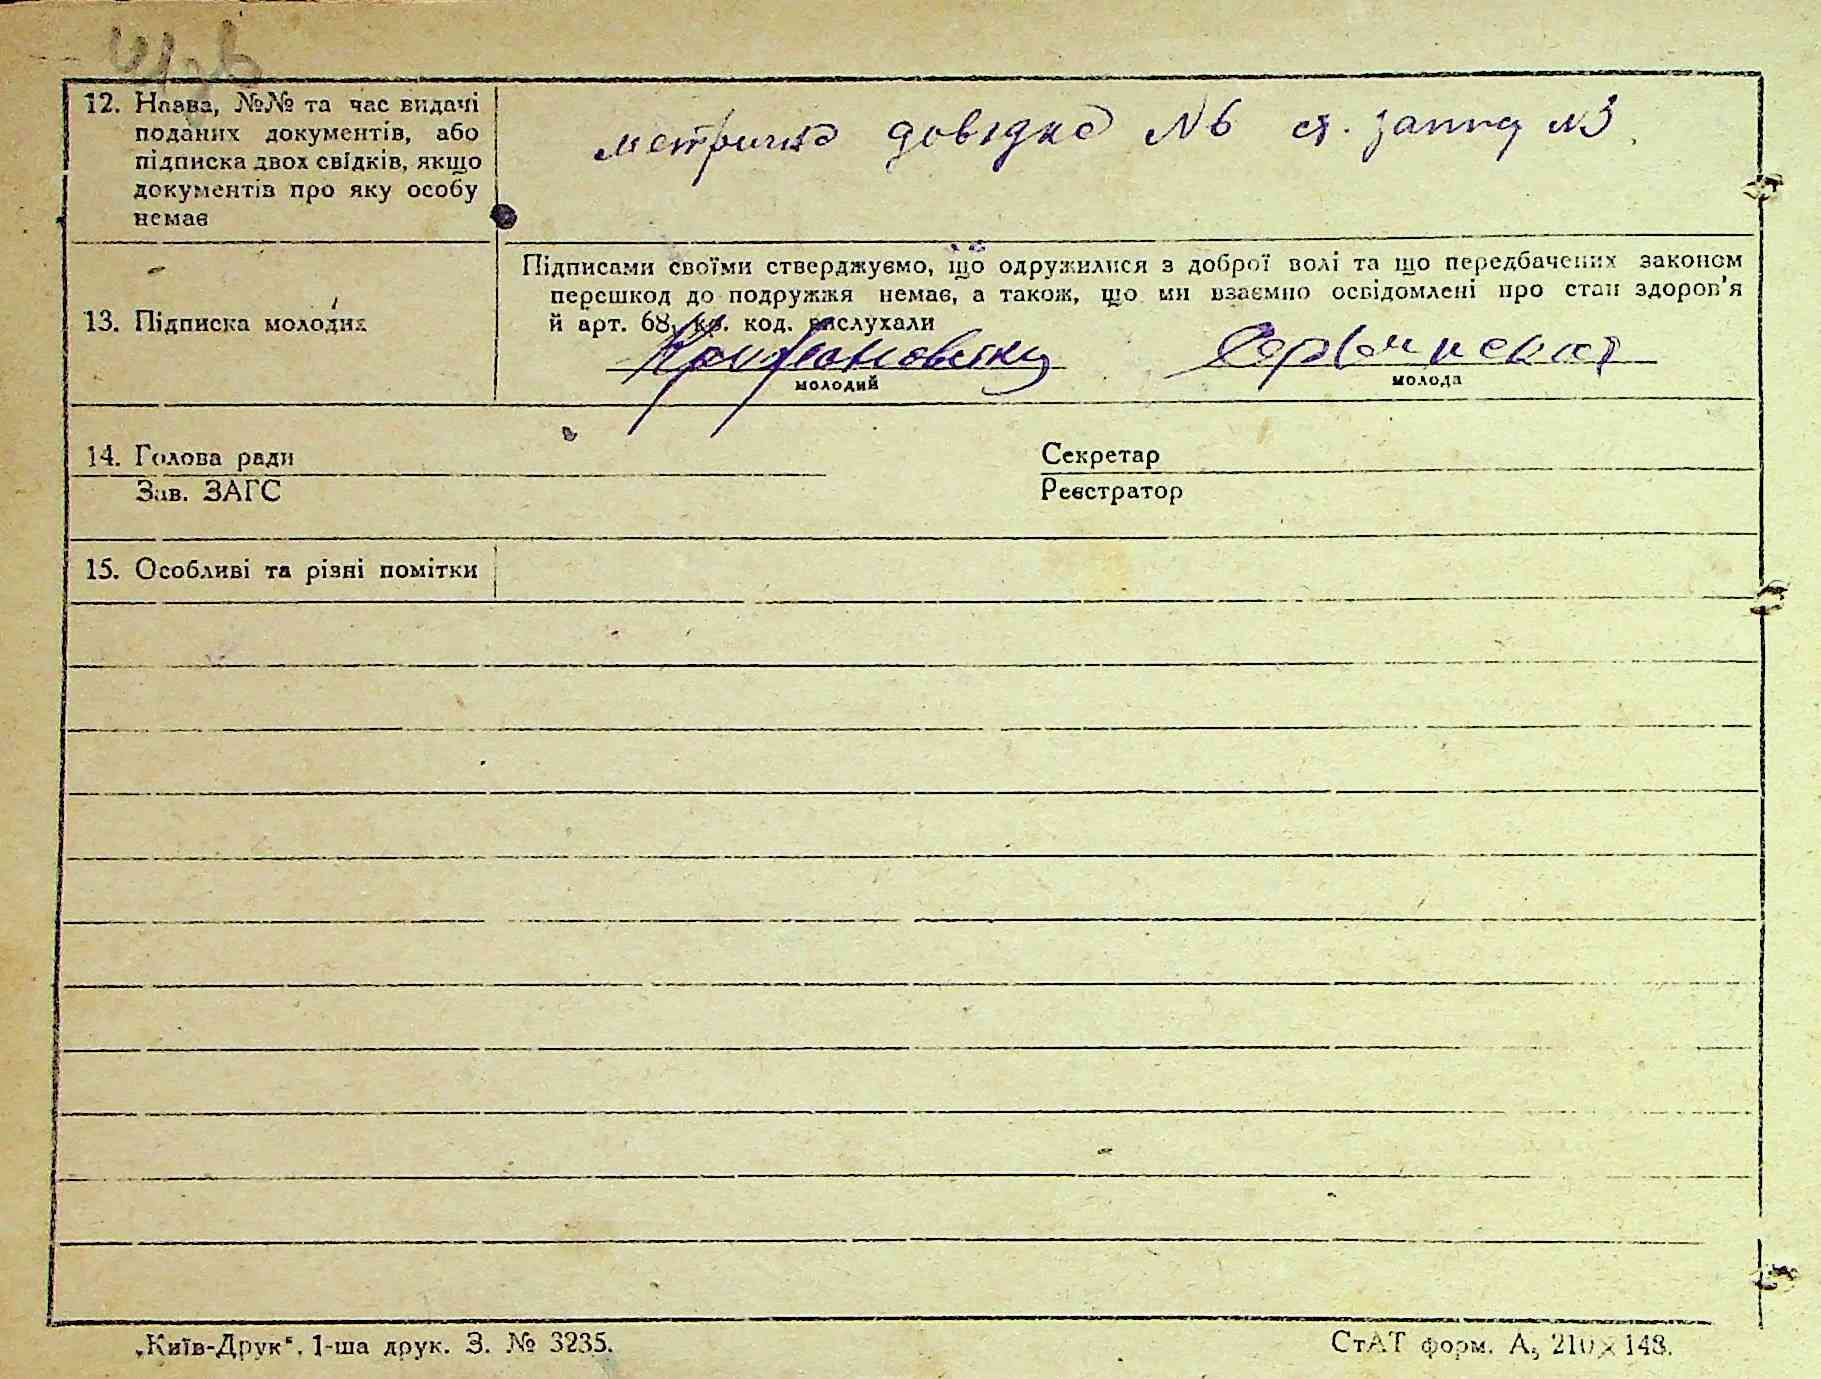 12. Назва, №№ та час видачі
поданих документів, або
підписка двох свідків, якщо
документів про яку особу
немає
метрична довідка №6 ст. запис №3
13. Підписка молодих
Підписами своїми стверджуємо, що одружилися з доброї волі та що передбачених законом
перешкод до подружжя немає, а також, що ми взаємно освідомлені про стан здоров'я
й арт. 68, кр. код. вислухали
молодий
молода
14. Голова ради
Секретар
Зав. ЗАГС
Реєстратор
15. Особливі та різні помітки
„Київ-Друк“. 1-ша друк. З. № 3235.
СтАТ форм. А₅ 210×148.